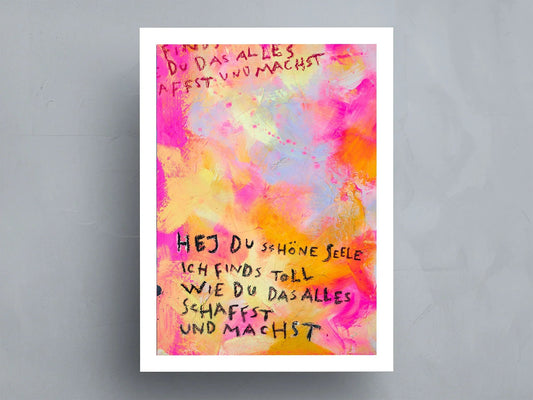 FINDS
DU DAS ALLES
AFFST UND MACHST
HEJ DU SCHÖNE SEELE
ICH FINDS TOLL
WIE DU DAS ALLES
SCHAFFST
UND MACHST.